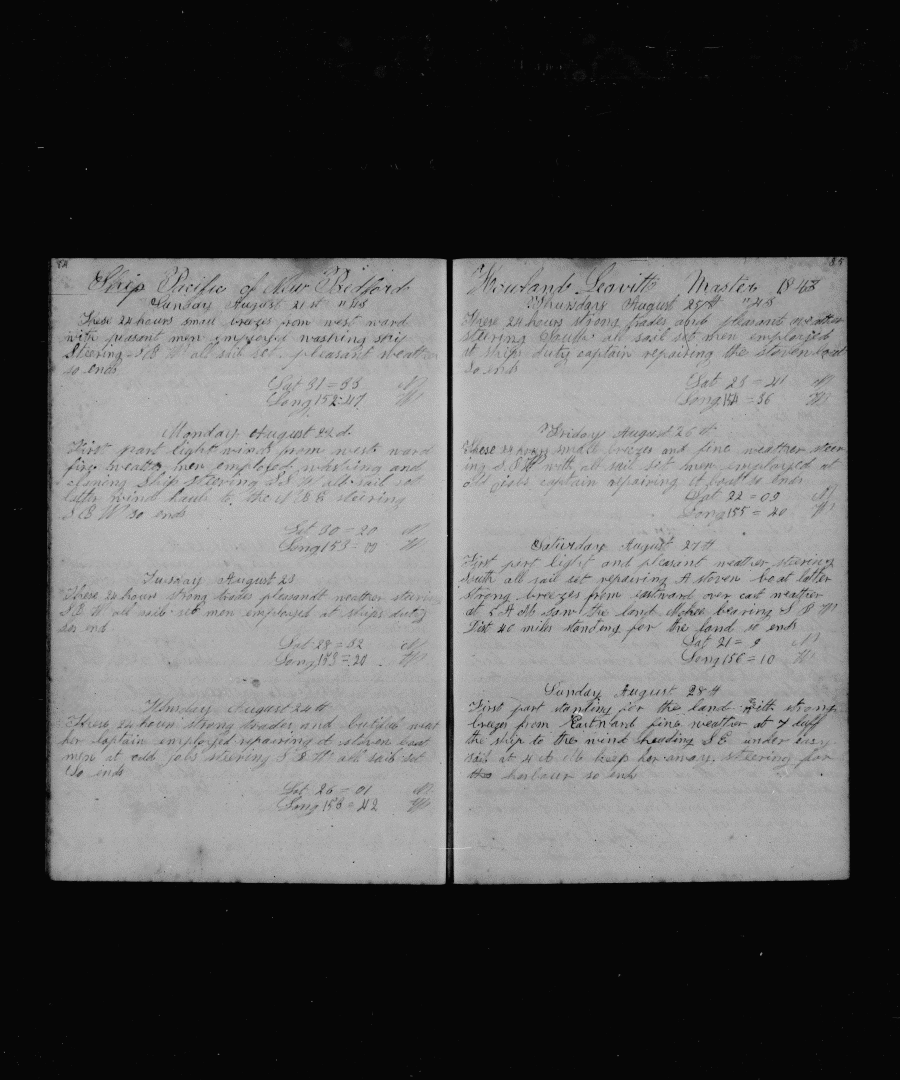 84
Ship Pacific of New Bedford
Sunday August 21st "48
These 24 hours small brezes from west ward
with pleasant men employed washing ship
Steering S B W all sail set pleasant weather
so ends
Lat 31 = 33 N
Long 152=47 W
Monday August 22d
First part light winds from west ward
fine weather men employed washing and
cleaning Ship steering S S W all sail set
later wind hauls to the N E steering
S B W so ends
Lat 30 = 20 N
Long 153 = 00 W
Tuesday August 23
These 24 hours strong trades pleasandt weather steering
S B W all sail set men employed at ships duty
so ends
Lat 28 = 32 N
Long 153 = 20 W
Wensday August 24th
These 24 hours strong trades and butifull weat
her Captain employed repairing A stoven boat
men at odd jobs steering S B W all sail set
So ends
Lat 26 = 01 N
Long 153 = 42 W
85
Howland Leavitt Master 1848
Thursday August 25th "48
These 24 hours strong trades and pleasant weather
steering South all sail set men employed
at ship duty captain repairing the stoven boat
so ends
Lat 23 = 41 N
Long 154 = 36 W
Friday August 26th
These 24 hours small brezes and fine weather steer
ing S S W with all sail set men employed at
old jobs captain repairing A boat so ends
Lat 22 = 09 N
Long 155 = 40 W
Saturday August 27th
First part light and pleasant weather steering
South all sail set repairing A stoven boat latter
strong breezes from eastward over cast weather
at 5 A M saw the land bearing S B W
Dist 40 miles standing for the land so ends
Lat 21 = 9 N
Long 156 = 10 W
Sunday August 28th
First part stanting for the land with strong
brezes from Eastward fine weather at 7 luff
the ship to the wind heeding S E under easy
sail at 4 A M keep her away steering for
the harbour so ends